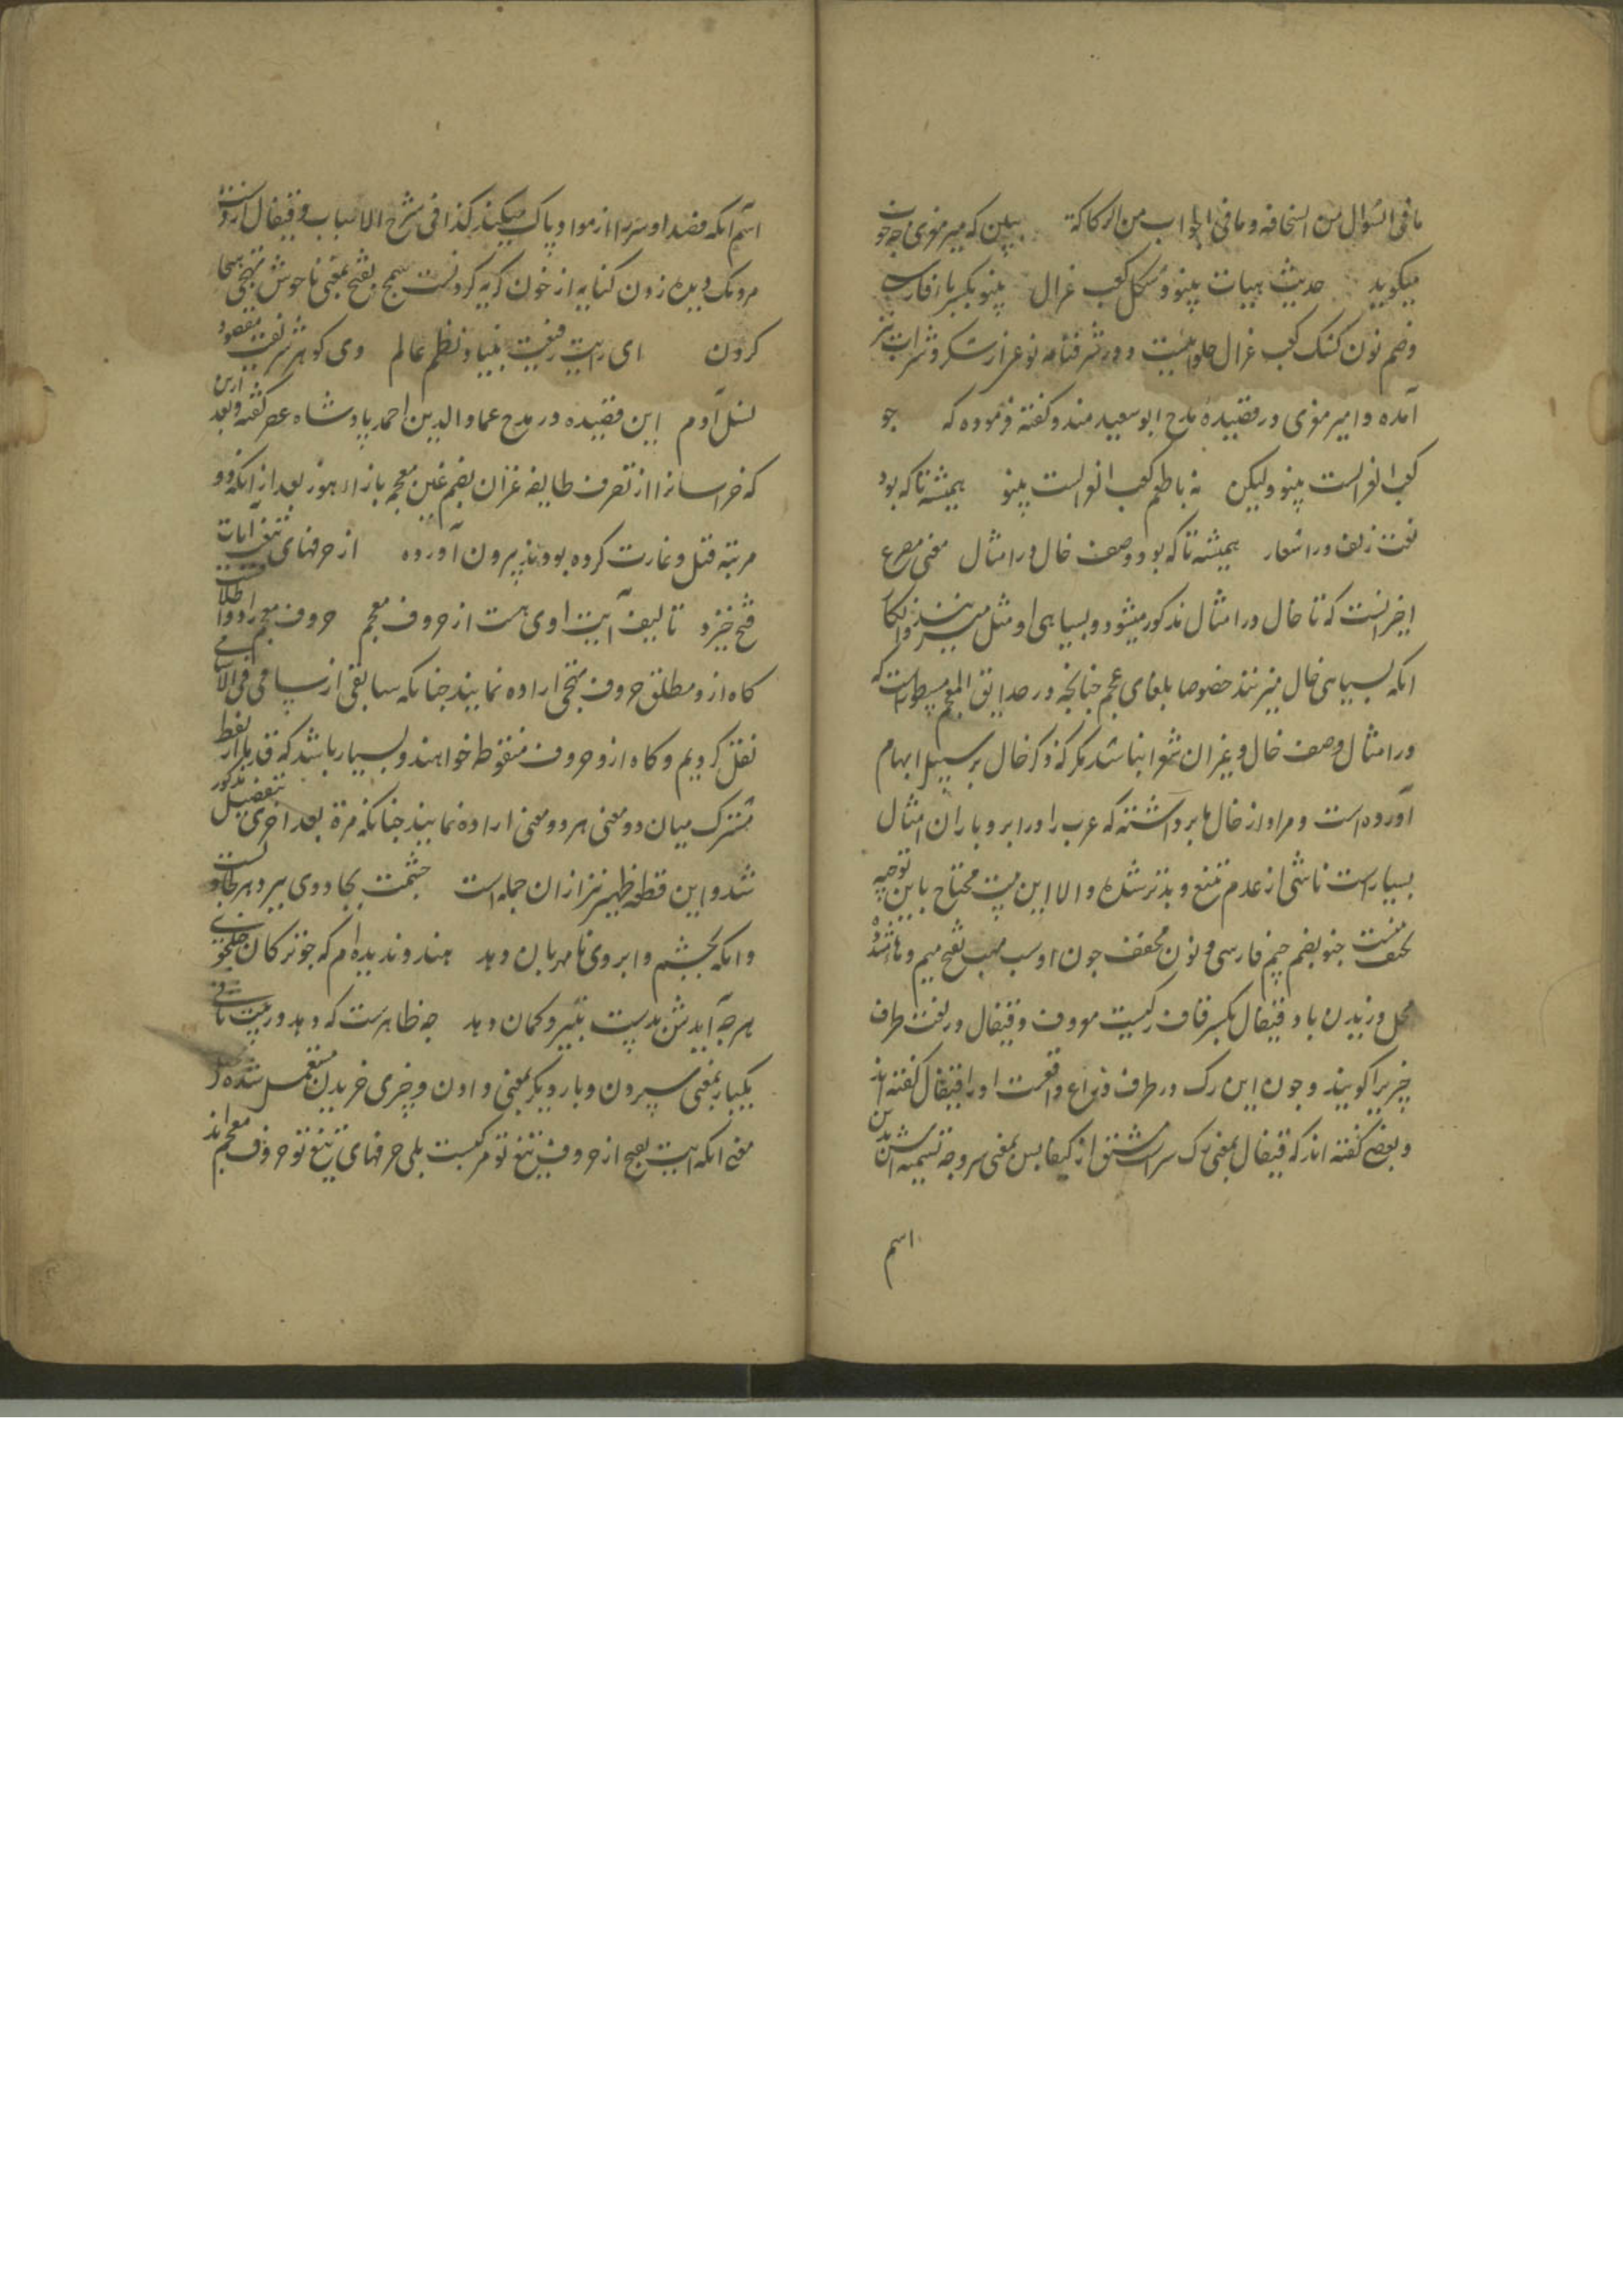 ما فی السؤال من السخافه و ما فی الجواب من الرکاکة ببین که میر معزی چه خوب
میکوید حدیث هیات پینو و شکل کعب غزال پینو بکسر با فارسی
و ضم نون کشک کعب غزال حلوائیست و در شرفنامه نوعی از شکر و شراب نیز
آمده و امیر معزی در قصیدهٔ مدح ابو سعید هندو کفته فرموده که چو
کعب الغزالست پینو ولیکن نه با طعم کعب الغزالست پینو همیشه تا که بود
نعت زلف در اشعار همیشه تا که بود وصف خال در امثال معنی مصرع
اخر انست که تا خال در امثال مذکور میشود و بسیاهی او مثل میزنند و انکار
انکه بسیاهی خال میزنند خصوصا بلغای عجم چنانچه در حدایق المعجم مسطور است که
در امثال وصف خال و غیر ان شعرا نباشد مکر که ذکر خال بر سبیل ابهام
آورده است و مراد از خال ابر داشته که عرب را در ابر و باران امثال
بسیار است ناشی از عدم تتبع و تدبر شده و الا این بیت محتاج باین توجیه
نیست جنو بضم جیم فارسی و نون مخفف چون او مهب بفتح میم و ها مشدد
محل وزیدن باد قیفال بکسر قاف رکیست معروف و قیفال در لغت طرف
چیزیرا کویند و چون این رک در طرف ذراع واقعست او را قیفال کفته اند
و بعضی کفته اند که قیفال بمعنی رک سر است مشتق از کیفالس بمعنی سر و وجه تسمیه اش بدین
اسم
اسم انکه فصد او سر را از مواد پاک میکند کذا فی شرح الاسباب و قیفال از دست
مردمک دیده زدن کنایه از خون کریه کردنست سمج بفتح بمعنی ناخوش تهجی هجا
کردن ای رایت رفیعت بنیاد نظم عالم وی کوهر شریفت مقصود
نسل آدم این قصیده در مدح عماد الدین احمد پادشاه عصر کفته و بعد ازین
که خراسانرا از تصرف طایفه غزان بضم غین معجم باز از هوز بعد از انکه دو
مرتبه قتل و غارت کرده بودند بیرون آورده از حرفهای تیغت آیات
فتح خیزد تالیف آیت اوی هست از حروف معجم حروف معجم را دو اطلاقست
کاه ازو مطلق حروف تهجی اراده نمایند چنانکه سابقی از سامی فی الاسامی
نقل کردیم و کاه ازو حروف منقوط خواهند و بسیار باشد که قدما از لفظ
مشترک میان دو معنی هر دو معنی اراده نمایند چنانکه مرة بعد اخری بتفصیل مذکور
شد و این قطعه ظهیر نیز از ان جمله است چشمت بجادوی ببرد هر کجا دلست
وانکه بچشم و ابروی نامهربان دهد هندو ندیده ام که چو ترکان جنکجوی
هر چه آیدش بدست بتیر و کمان دهد چه ظاهرست که دهد در بیت ثانی
یکبار بمعنی سپردن و بار دیکر بمعنی دادن و چیزی خریدن مستعمل شده
معنی انکه آیت فتح از حروف تیغ تو مرکبست بلی حرفهای تیغ تو حروف معجم اند